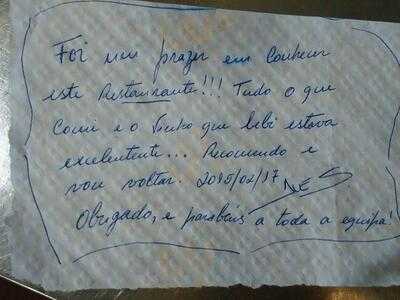 Foi um prazer em conhecer
este Restaurante!!! Tudo o que
Comi e o Vinho que bebi estava
excelentente... Recomendo e
vou voltar. 2015/02/17
Obrigado, e parabéns a toda a equipa!